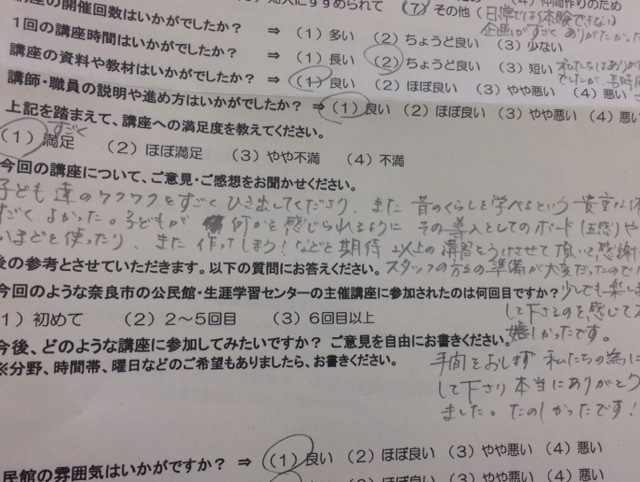 知人にすすめられて (7) その他 (日常では体験できない
の開催回数はいかがでしたか? ⇒ (1) 多い (2) ちょうど良い (3) 少ない
企画がすごくありがたかった
1回の講座時間はいかがでしたか? ⇒ (1) 長い (2) ちょうど良い (3) 短い
講座の資料や教材はいかがでしたか? ⇒ (1) 良い (2) ほぼ良い (3) やや悪い (4) 悪い
講師・職員の説明や進め方はいかがでしたか? ⇒ (1) 良い (2) ほぼ良い (3) やや悪い (4) 悪い
上記を踏まえて、講座への満足度を教えてください。
すごく
(1) 満足 (2) ほぼ満足 (3) やや不満 (4) 不満
今回の講座について、ご意見・ご感想をお聞かせください。
子ども達のワクワクをすごくひき出してくださり、また 昔のくらしを学べるという貴重な体
ごくよかった。子どもが 何かを感じられるように その導入としてのボード(五感)や
まどを使ったり、また 作ってしまう!などと期待以上の講習をうけさせて頂いて感謝
後の参考とさせていただきます。以下の質問にお答えください。
スタッフの方々の準備が大変だったので
今回のような奈良市の公民館・生涯学習センターの主催講座に参加されたのは何回目ですか?
少しでも楽しま
(1) 初めて (2) 2~5回目 (3) 6回目以上
して下さるのを感じて
嬉しかったです。
今後、どのような講座に参加してみたいですか? ご意見を自由にお書きください。
※分野、時間帯、曜日などのご希望もありましたら、お書きください。
手間をおしまず 私たちの為に
して下さり本当にありがとう
ました。たのしかったです!
民館の雰囲気はいかがですか? ⇒ (1) 良い (2) ほぼ良い (3) やや悪い (4) 悪い